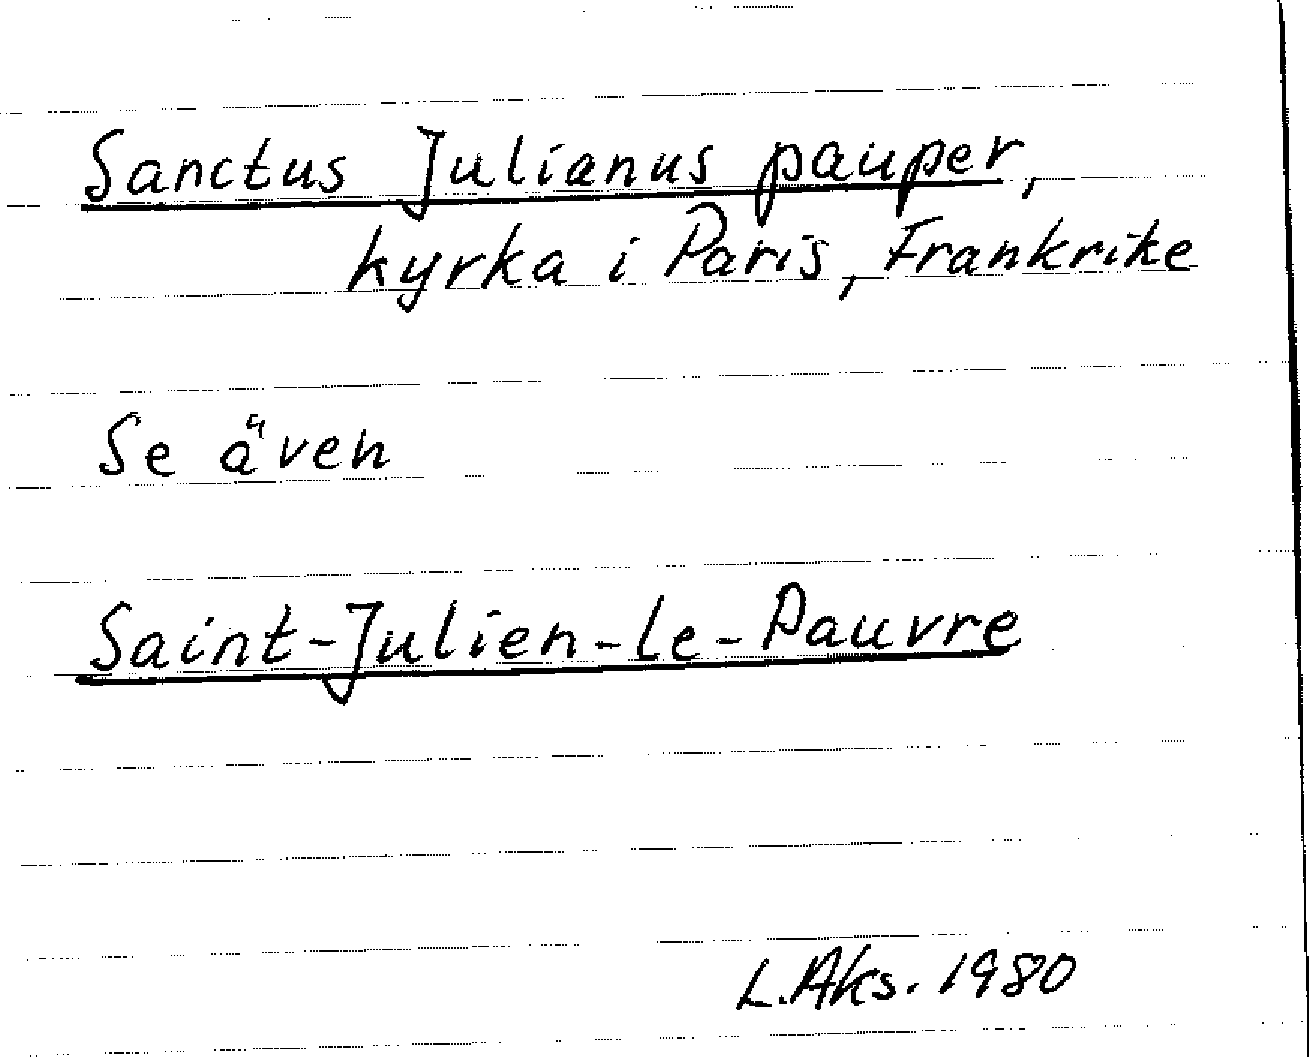 Sanctus Julianus pauper,
kyrka i Paris, Frankrike
Se även
Saint-Julien-le-Pauvre
L.Aks. 1980